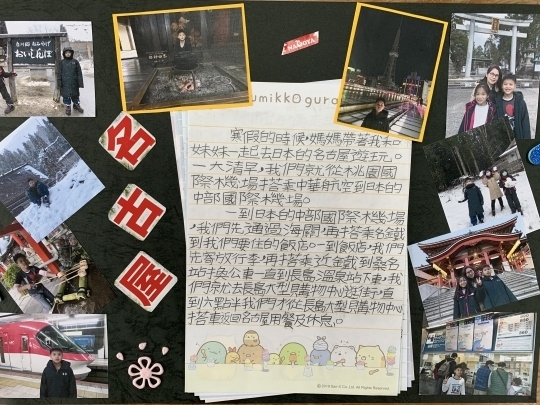 NAGOYA
umikkogura
名
古
屋
寒假的時候,媽媽帶著我和
妹妹一起去日本的名古屋遊玩。
一大清早,我們就從桃園國
際機場搭乘中華航空到日本的
中部國際機場。
一到日本的中部國際機場,
我們先通過海關,再搭乘名鐵
到我們要住的飯店。一到飯店,我們
先寄放行李,再搭乘近鐵到桑名
站搭公車一直到長島溫泉站下車,我
們原於去長島大型購物中心逛街,直
到六點半我們才從長島大型購物中心
搭車返回名古屋用餐及休息。